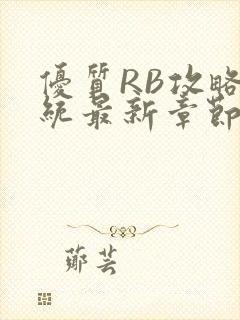 優質RB攻略
統最新章節
鄭芸